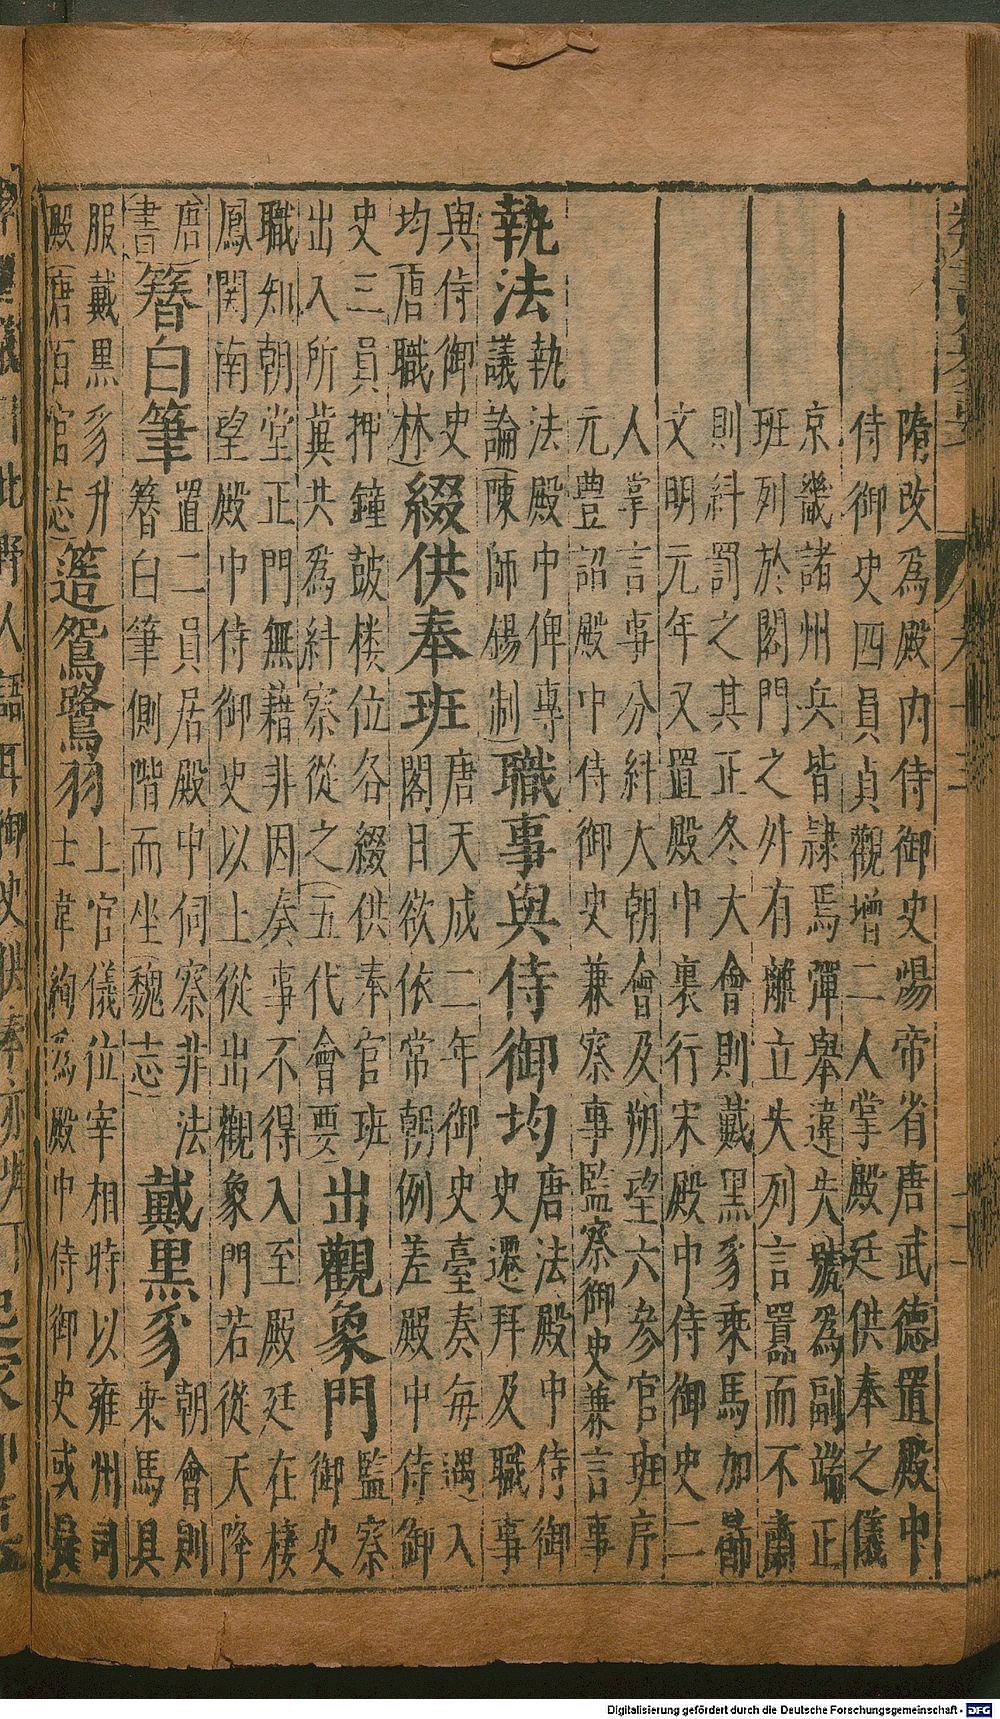 隋改爲殿内侍御史煬帝省唐武德置殿中
侍御史四員貞觀增二人掌殿廷供奉之儀
京畿諸州兵皆隷焉彈舉違失號爲副端正
班列於閣門之外有離立失列言囂而不肅
則糾罰之其正冬大會則戴黑豸乘馬加飾
文明元年又置殿中裏行宋殿中侍御史二
人掌言事分糾大朝會及朔望六參官班序
元豊詔殿中侍御史兼察事監察御史兼言事
執法 執法殿中俾專
議論(陳師錫制) 職事與侍御均 唐法殿中侍御
史遷拜及職事
與侍御史
均(唐職林) 綴供奉班 唐天成二年御史臺奏每遇入
閣日欲依常朝例差殿中侍御
史三員押鐘皷楼位各綴供奉官班
出入所兾共爲糾察從之(五代會要) 出觀象門 監察
御史
職知朝堂正門無藉非因奏事不得入至殿廷在棲
鳳闗南望殿中侍御史以上從出觀象門若從天降
唐置二員居殿中伺察非法
書) 簮白筆 簮白筆側階而坐(魏志) 戴黑豸 朝會則
乘馬具
服戴黑豸升
殿(唐百官志) 簉鴛鷺羽 上官儀位宰相時以雍州司
士韋絢爲殿中侍御史或疑
Digitalisierung gefördert durch die Deutsche Forschungsgemeinschaft - DFG